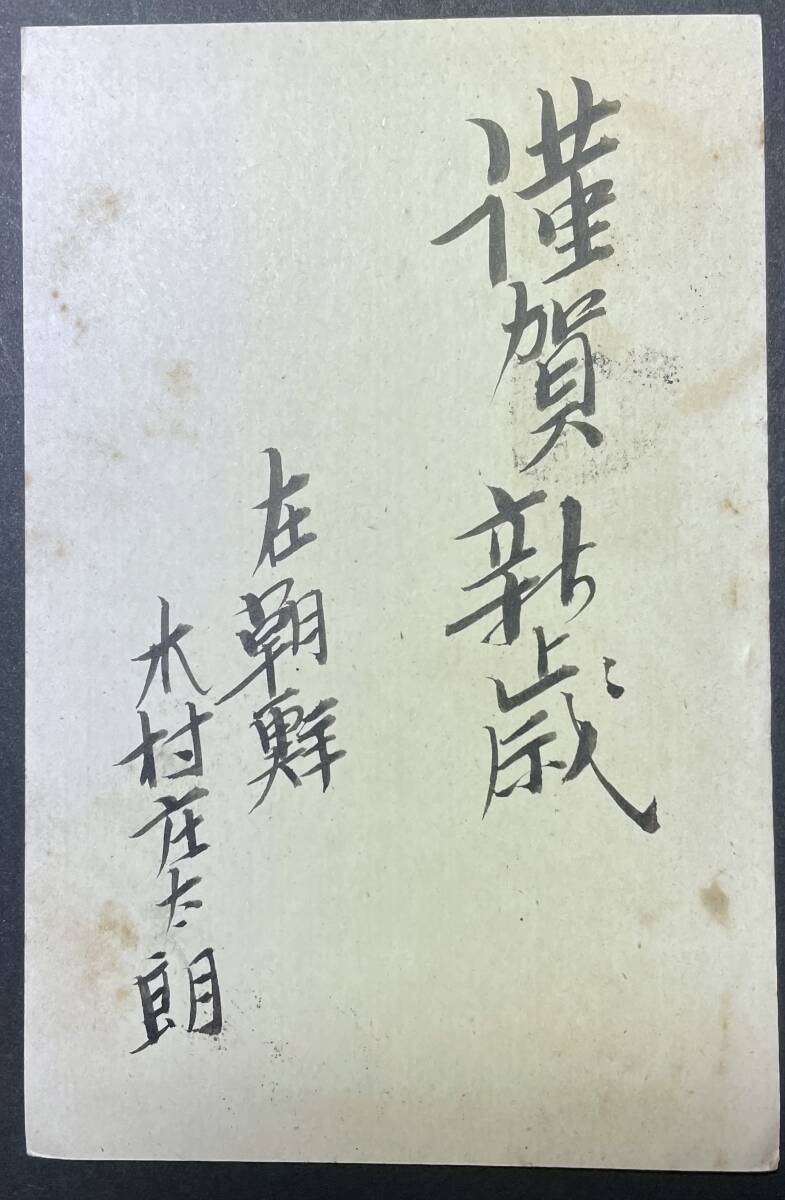 謹賀新歳
在朝鮮
木村庄太朗